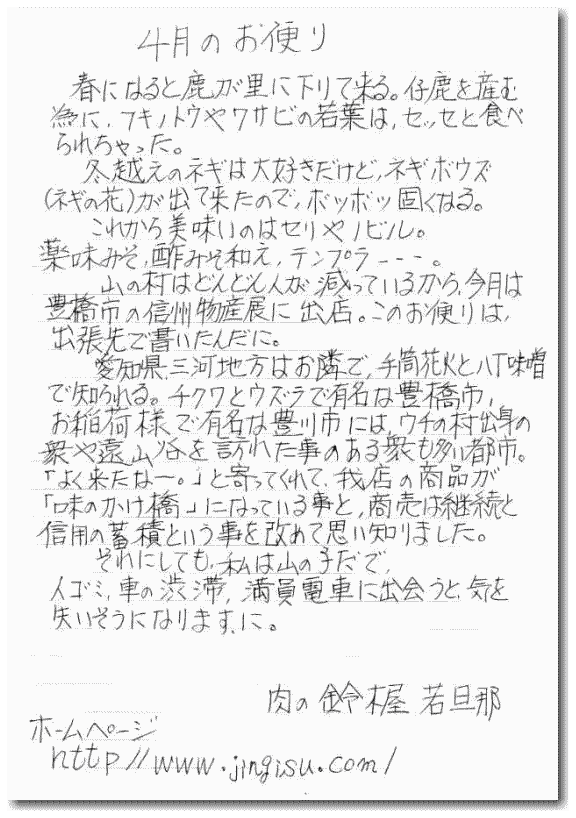 4月のお便り
春になると鹿が里に下りて来る。仔鹿を産む
為に、フキノトウやワサビの若葉は、セッセと食べ
られちゃった。
冬越えのネギは大好きだけど、ネギボウズ
(ネギの花)が出て来たので、ボツボツ固くなる。
これから美味いのはセリやノビル。
薬味みそ、酢みそ和え、テンプラ---。
山の村はどんどん人が減っているから、今月は
豊橋市の信州物産展に出店。このお便りは、
出張先で書いたんだに。
愛知県三河地方はお隣で、手筒花火と八丁味噌
で知られる。チクワとウズラで有名な豊橋市、
お稲荷様で有名な豊川市には、ウチの村出身の
衆や遠山谷を訪れた事のある衆も多い都市。
「よく来たな〜。」と寄ってくれて、我店の商品が
「味のかけ橋」になっている事と、商売は継続と
信用の蓄積という事を改めて思い知りました。
それにしても、私は山の子だで、
人ゴミ、車の渋滞、満員電車に出会うと、気を
失いそうになります、に。
肉の鈴木屋 若旦那
ホームページ
http//www.jingisu.com/